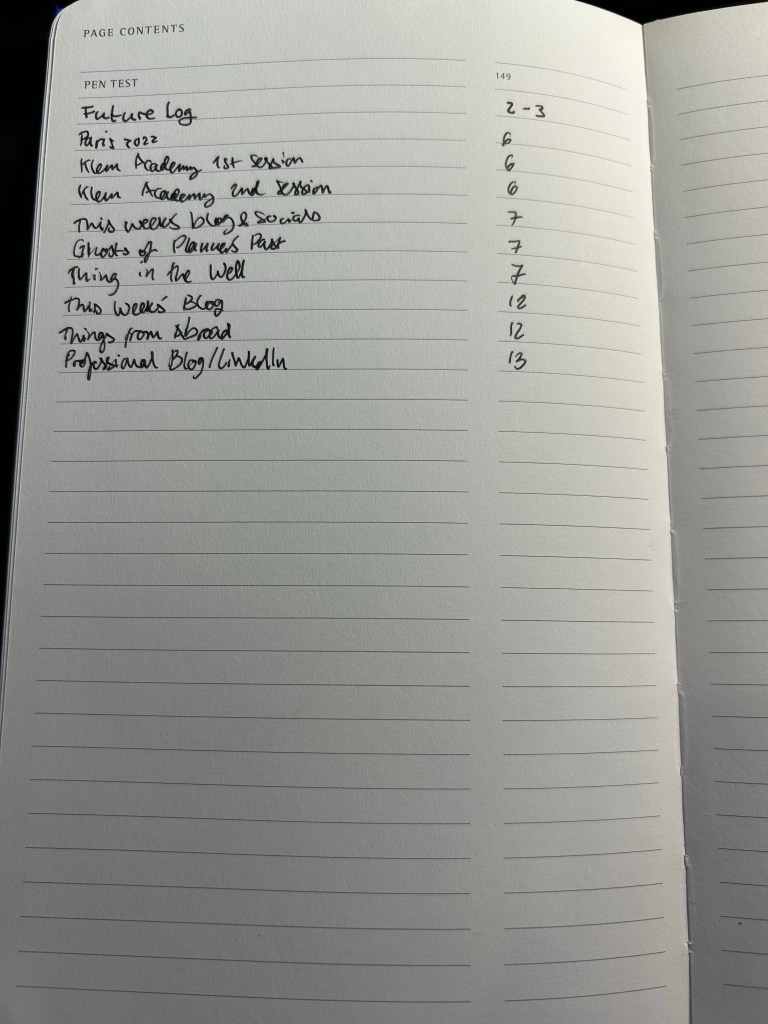 PAGE CONTENTS
PEN TEST 149
Future Log 2-3
Paris 2022 6
Klem Academy 1st Session 6
Klem Academy 2nd Session 6
This weeks blog & Socials 7
Ghosts of Planners Past 7
Thing in the Well 7
This Weeks' Blog 12
Things from Abroad 12
Professional Blog/LinkedIn 13